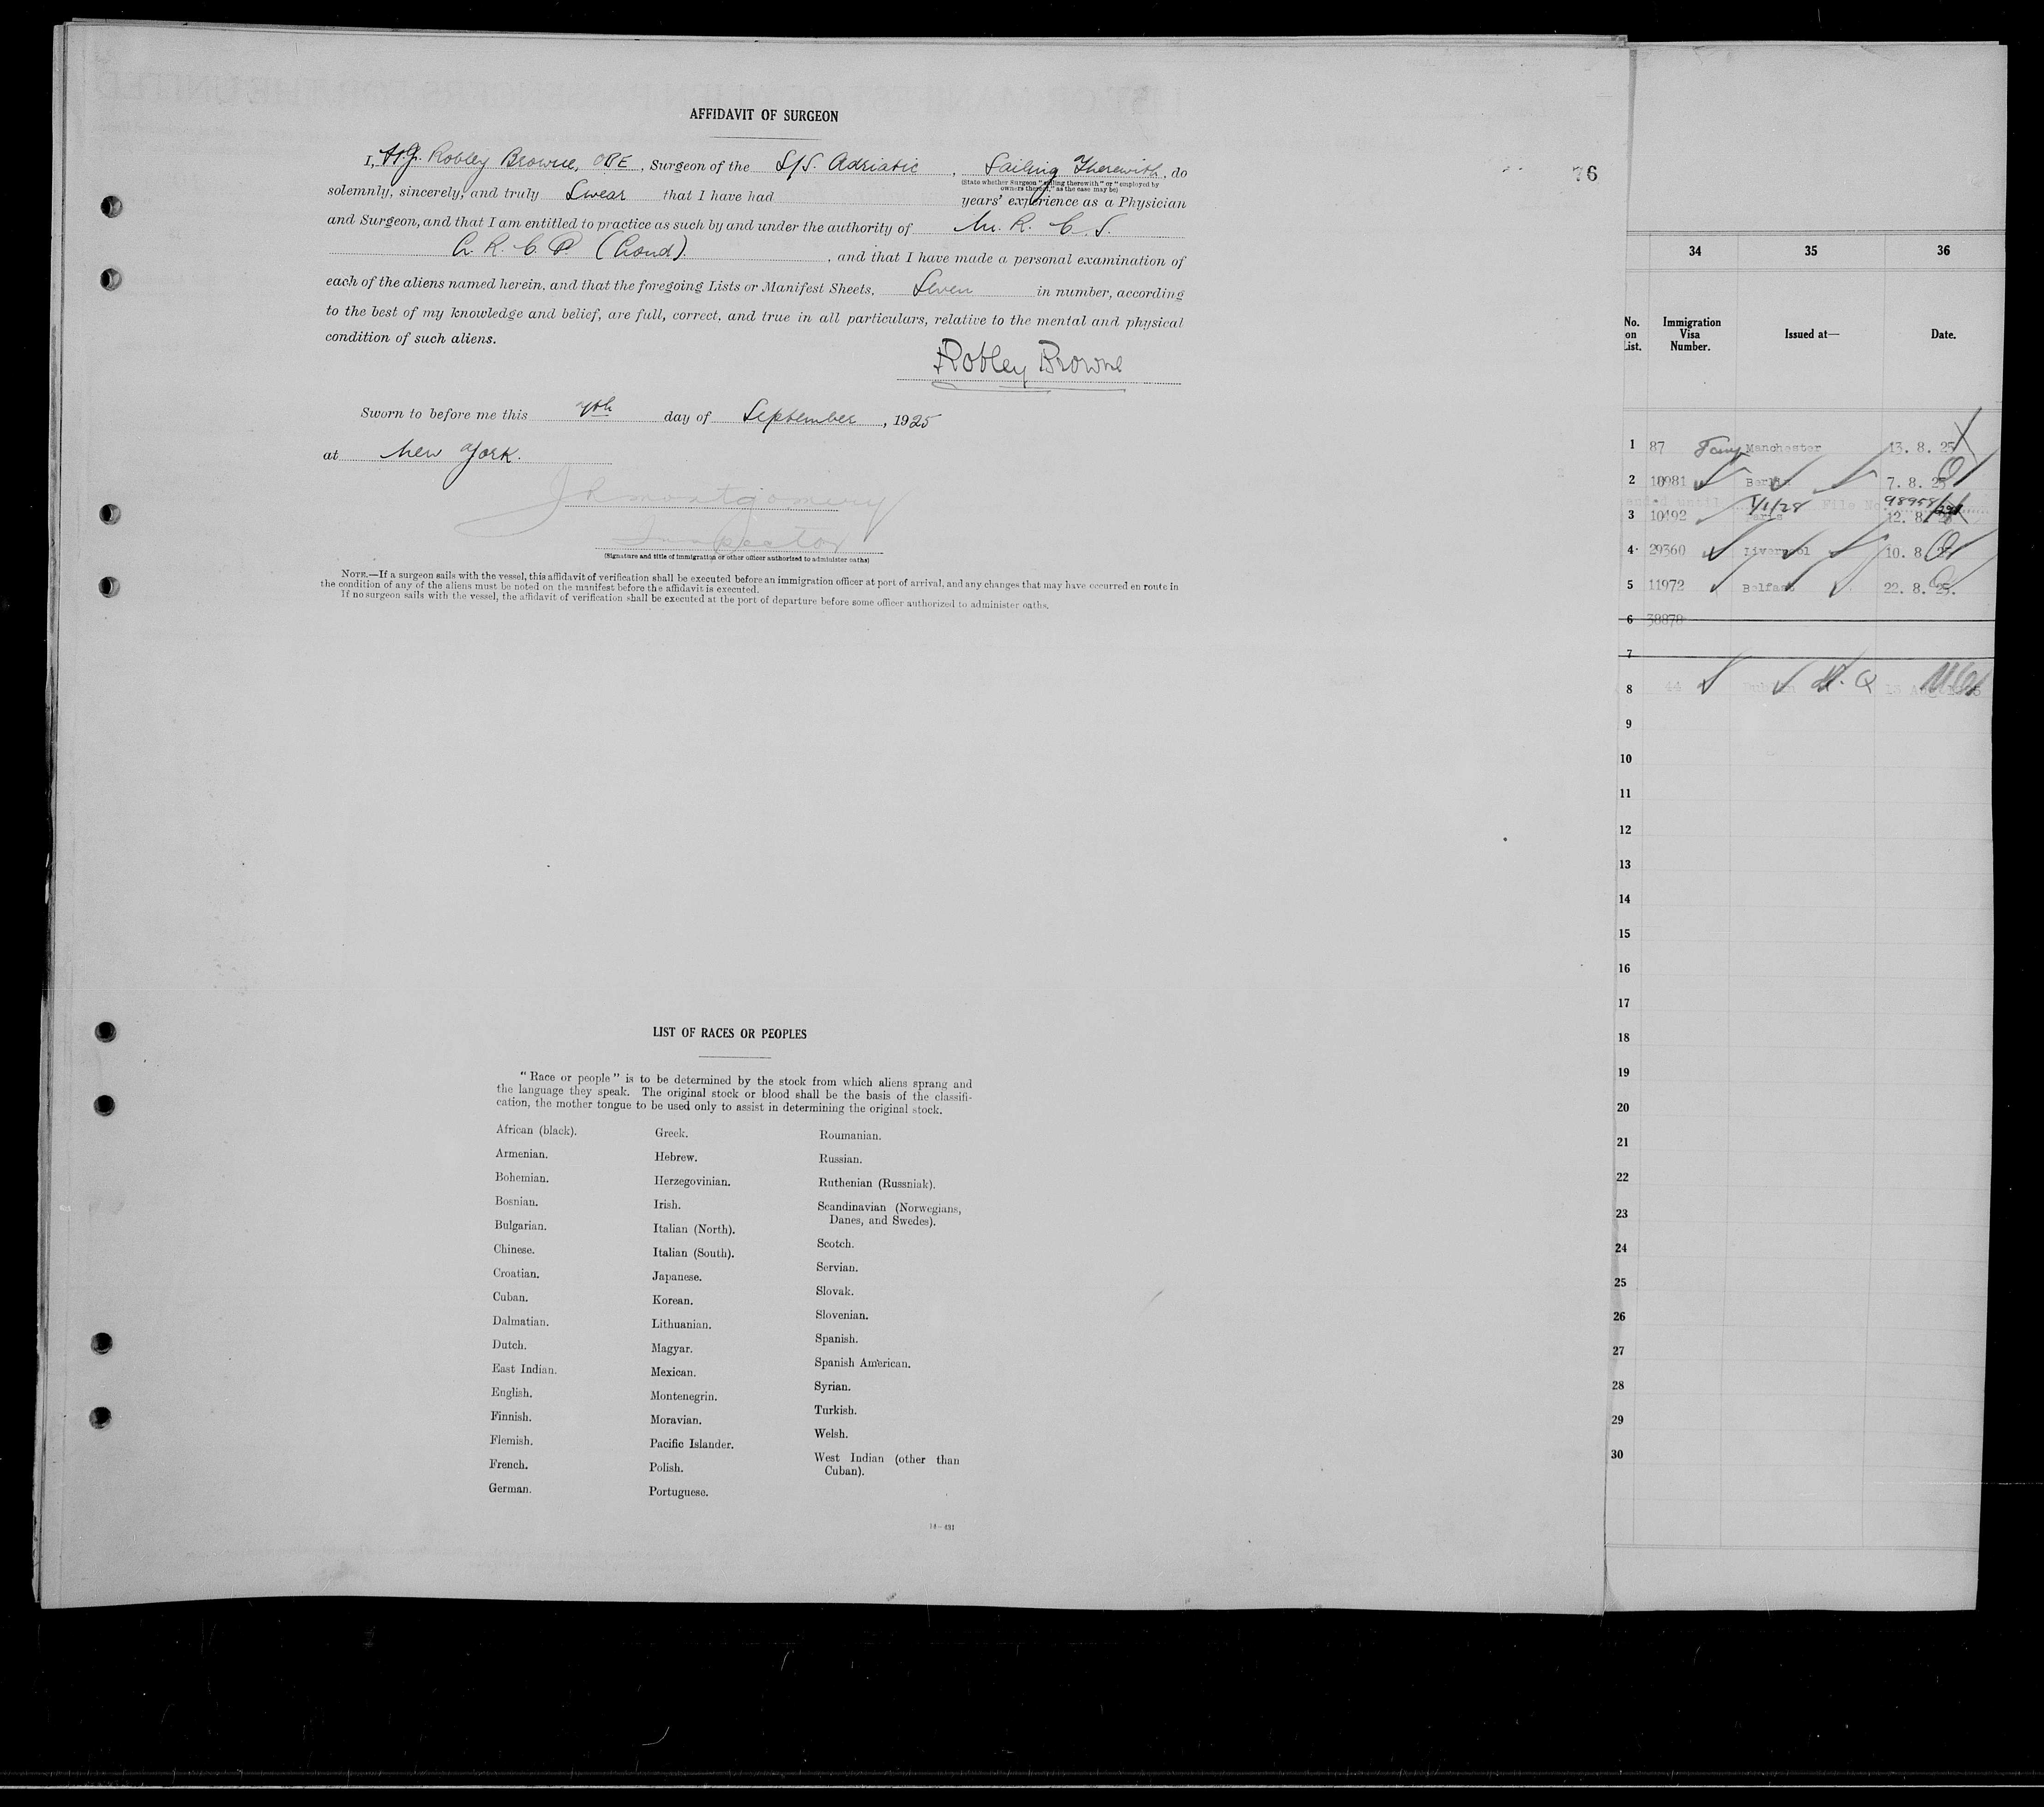 AFFIDAVIT OF SURGEON
I, H.G. Robley Browne, OBE, Surgeon of the S/S. Adriatic, Sailing Therewith, do
(State whether Surgeon "sailing therewith" or "employed by
owners thereof," as the case may be)
solemnly, sincerely, and truly Swear that I have had years' experience as a Physician
and Surgeon, and that I am entitled to practice as such by and under the authority of M. R. C. S.
L. R. C. P. (Lond). , and that I have made a personal examination of
each of the aliens named herein, and that the foregoing Lists or Manifest Sheets, Seven in number, according
to the best of my knowledge and belief, are full, correct, and true in all particulars, relative to the mental and physical
condition of such aliens.
Robley Browne
Sworn to before me this 7th day of September, 1925
at New York.
J R Montgomery
Inspector
(Signature and title of immigration or other officer authorized to administer oaths)
NOTE.—If a surgeon sails with the vessel, this affidavit of verification shall be executed before an immigration officer at port of arrival, and any changes that may have occurred en route in
the condition of any of the aliens must be noted on the manifest before the affidavit is executed.
If no surgeon sails with the vessel, the affidavit of verification shall be executed at the port of departure before some officer authorized to administer oaths.
LIST OF RACES OR PEOPLES
"Race or people" is to be determined by the stock from which aliens sprang and
the language they speak. The original stock or blood shall be the basis of the classifi-
cation, the mother tongue to be used only to assist in determining the original stock.
African (black).
Armenian.
Bohemian.
Bosnian.
Bulgarian.
Chinese.
Croatian.
Cuban.
Dalmatian.
Dutch.
East Indian.
English.
Finnish.
Flemish.
French.
German.
Greek.
Hebrew.
Herzegovinian.
Irish.
Italian (North).
Italian (South).
Japanese.
Korean.
Lithuanian.
Magyar.
Mexican.
Montenegrin.
Moravian.
Pacific Islander.
Polish.
Portuguese.
Roumanian.
Russian.
Ruthenian (Russniak).
Scandinavian (Norwegians,
Danes, and Swedes).
Scotch.
Servian.
Slovak.
Slovenian.
Spanish.
Spanish American.
Syrian.
Turkish.
Welsh.
West Indian (other than
Cuban).
14—431
76
34 35 36
No.
on
List.
Immigration
Visa
Number.
Issued at—
Date.
1 87 Temp Manchester 13. 8. 25
2 10981 Berlin 7. 8. 25
until 1/1/28 File No. 98958/
3 10492 Paris 12. 8.
4 29360 Liverpool 10. 8. 25
5 11972 Belfast 22. 8. 25.
6 38878
7
8 44 Dublin 13 Aug 1925
9
10
11
12
13
14
15
16
17
18
19
20
21
22
23
24
25
26
27
28
29
30